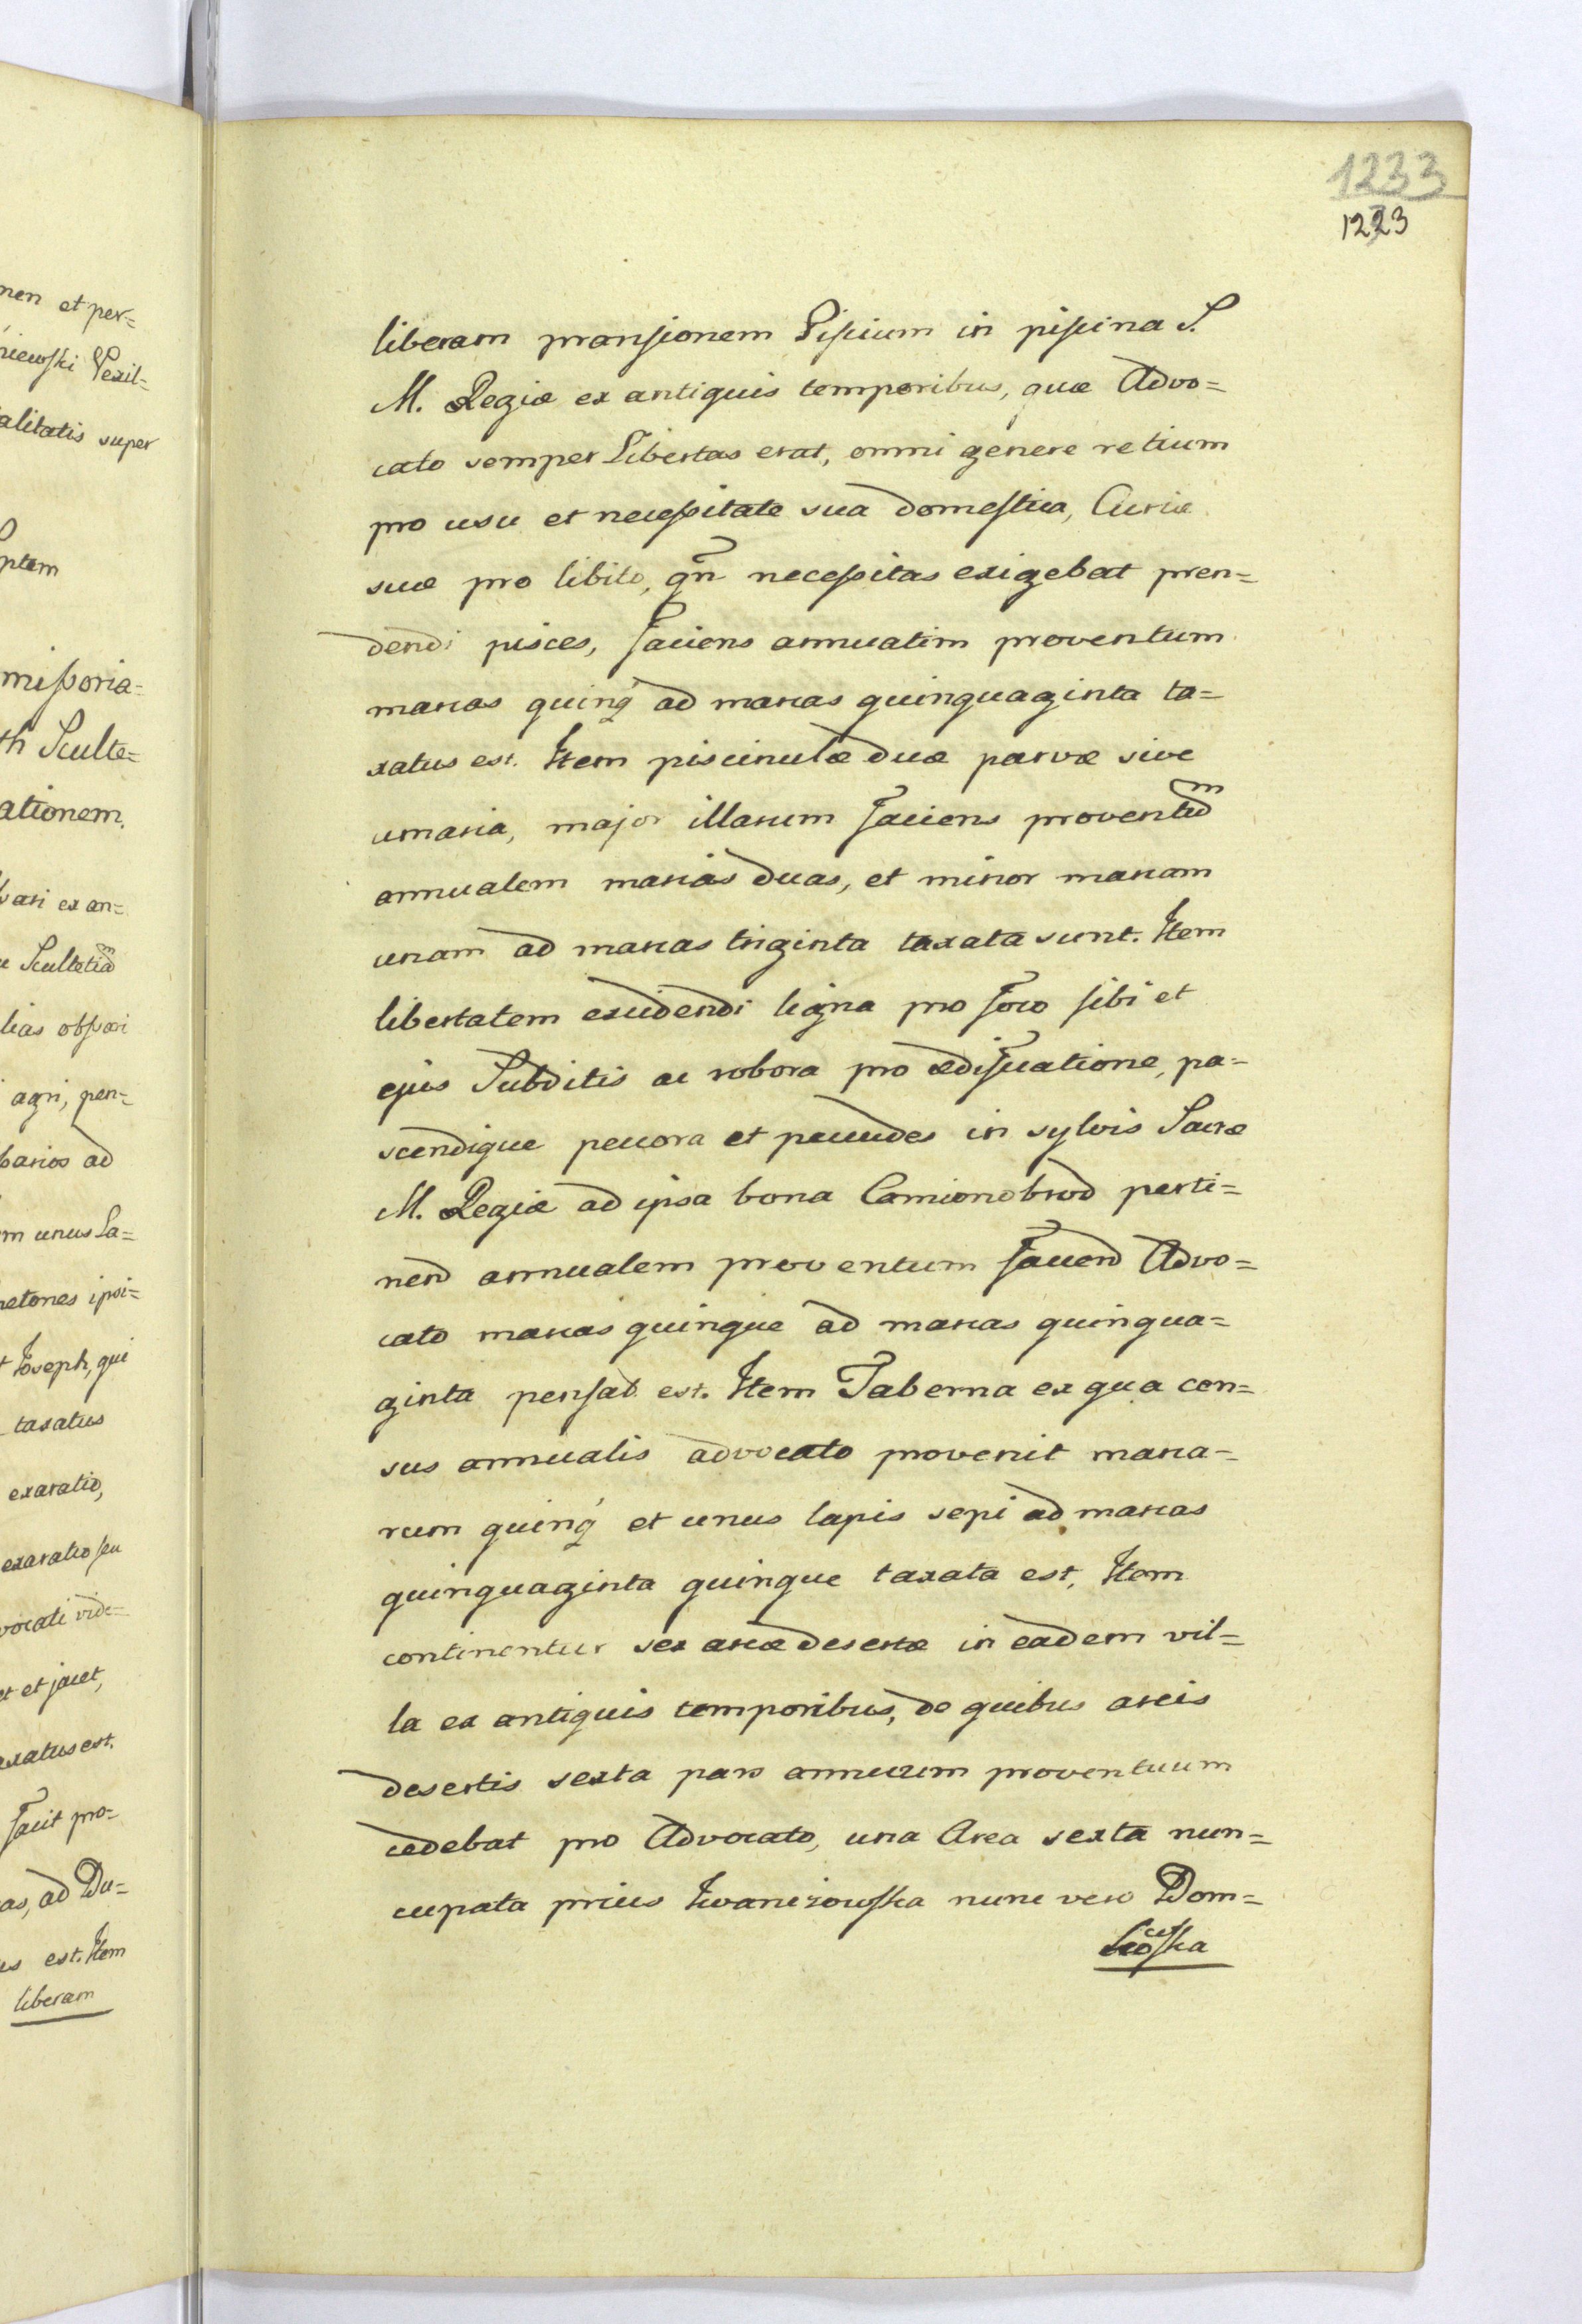 nen et per=
niewski Vexil=
alitatis super
ptem
missoria=
th Sculte=
ationem.
vari ex an=
Scultetiam
lias obsvari
agri, pen=
barios ad
m unus La=
netones ipsi=
Joseph, qui
taxatus
exaratio,
exaratio seu
vocati vide=
et et jacet,
axatus est.
facit pro=
as, ad Du=
us est. Item
liberam
1233
1223
liberam pransionem Piscium in piscina S.
M. Regiæ ex antiquis temporibus, quæ Advo=
cato semper Libertas erat, omni genere retium
pro usu et necessitate sua domestica, Curiæ
suæ pro libito, qn̄ necessitas exigebat pren=
dendi pisces, faciens annuatim proventum
marcas quinq́ ad marcas quinquaginta ta=
xatus est. Item piscinulæ duæ parvæ sive
umaria, major illarum faciens proventum
annualem marcas duas, et minor marcam
unam ad marcas triginta taxata sunt. Item
libertatem excidendi ligna pro foco sibi et
ejus Subditis ac robora pro ædificatione, pa=
scendique peccora et pecudes in sylvis Sacræ
M. Regiæ ad ipsa bona Camionobrod perti=
nend annualem proventum faciend Advo=
cato marcas quinque ad marcas quinqua=
ginta pensat. est. Item Taberna ex qua con=
sus annualis advocato provenit marca=
rum quinq́ et unus lapis sepi ad marcas
quinquaginta quinque taxata est, Item
continentur sex areæ desertæ in eadem vil=
la ex antiquis temporibus, de quibus areis
desertis sexta pars annuum proventuum
cedebat pro Advocato, una Area sexta nun=
cupata prius Iwaniszowska nunc vero Dom=